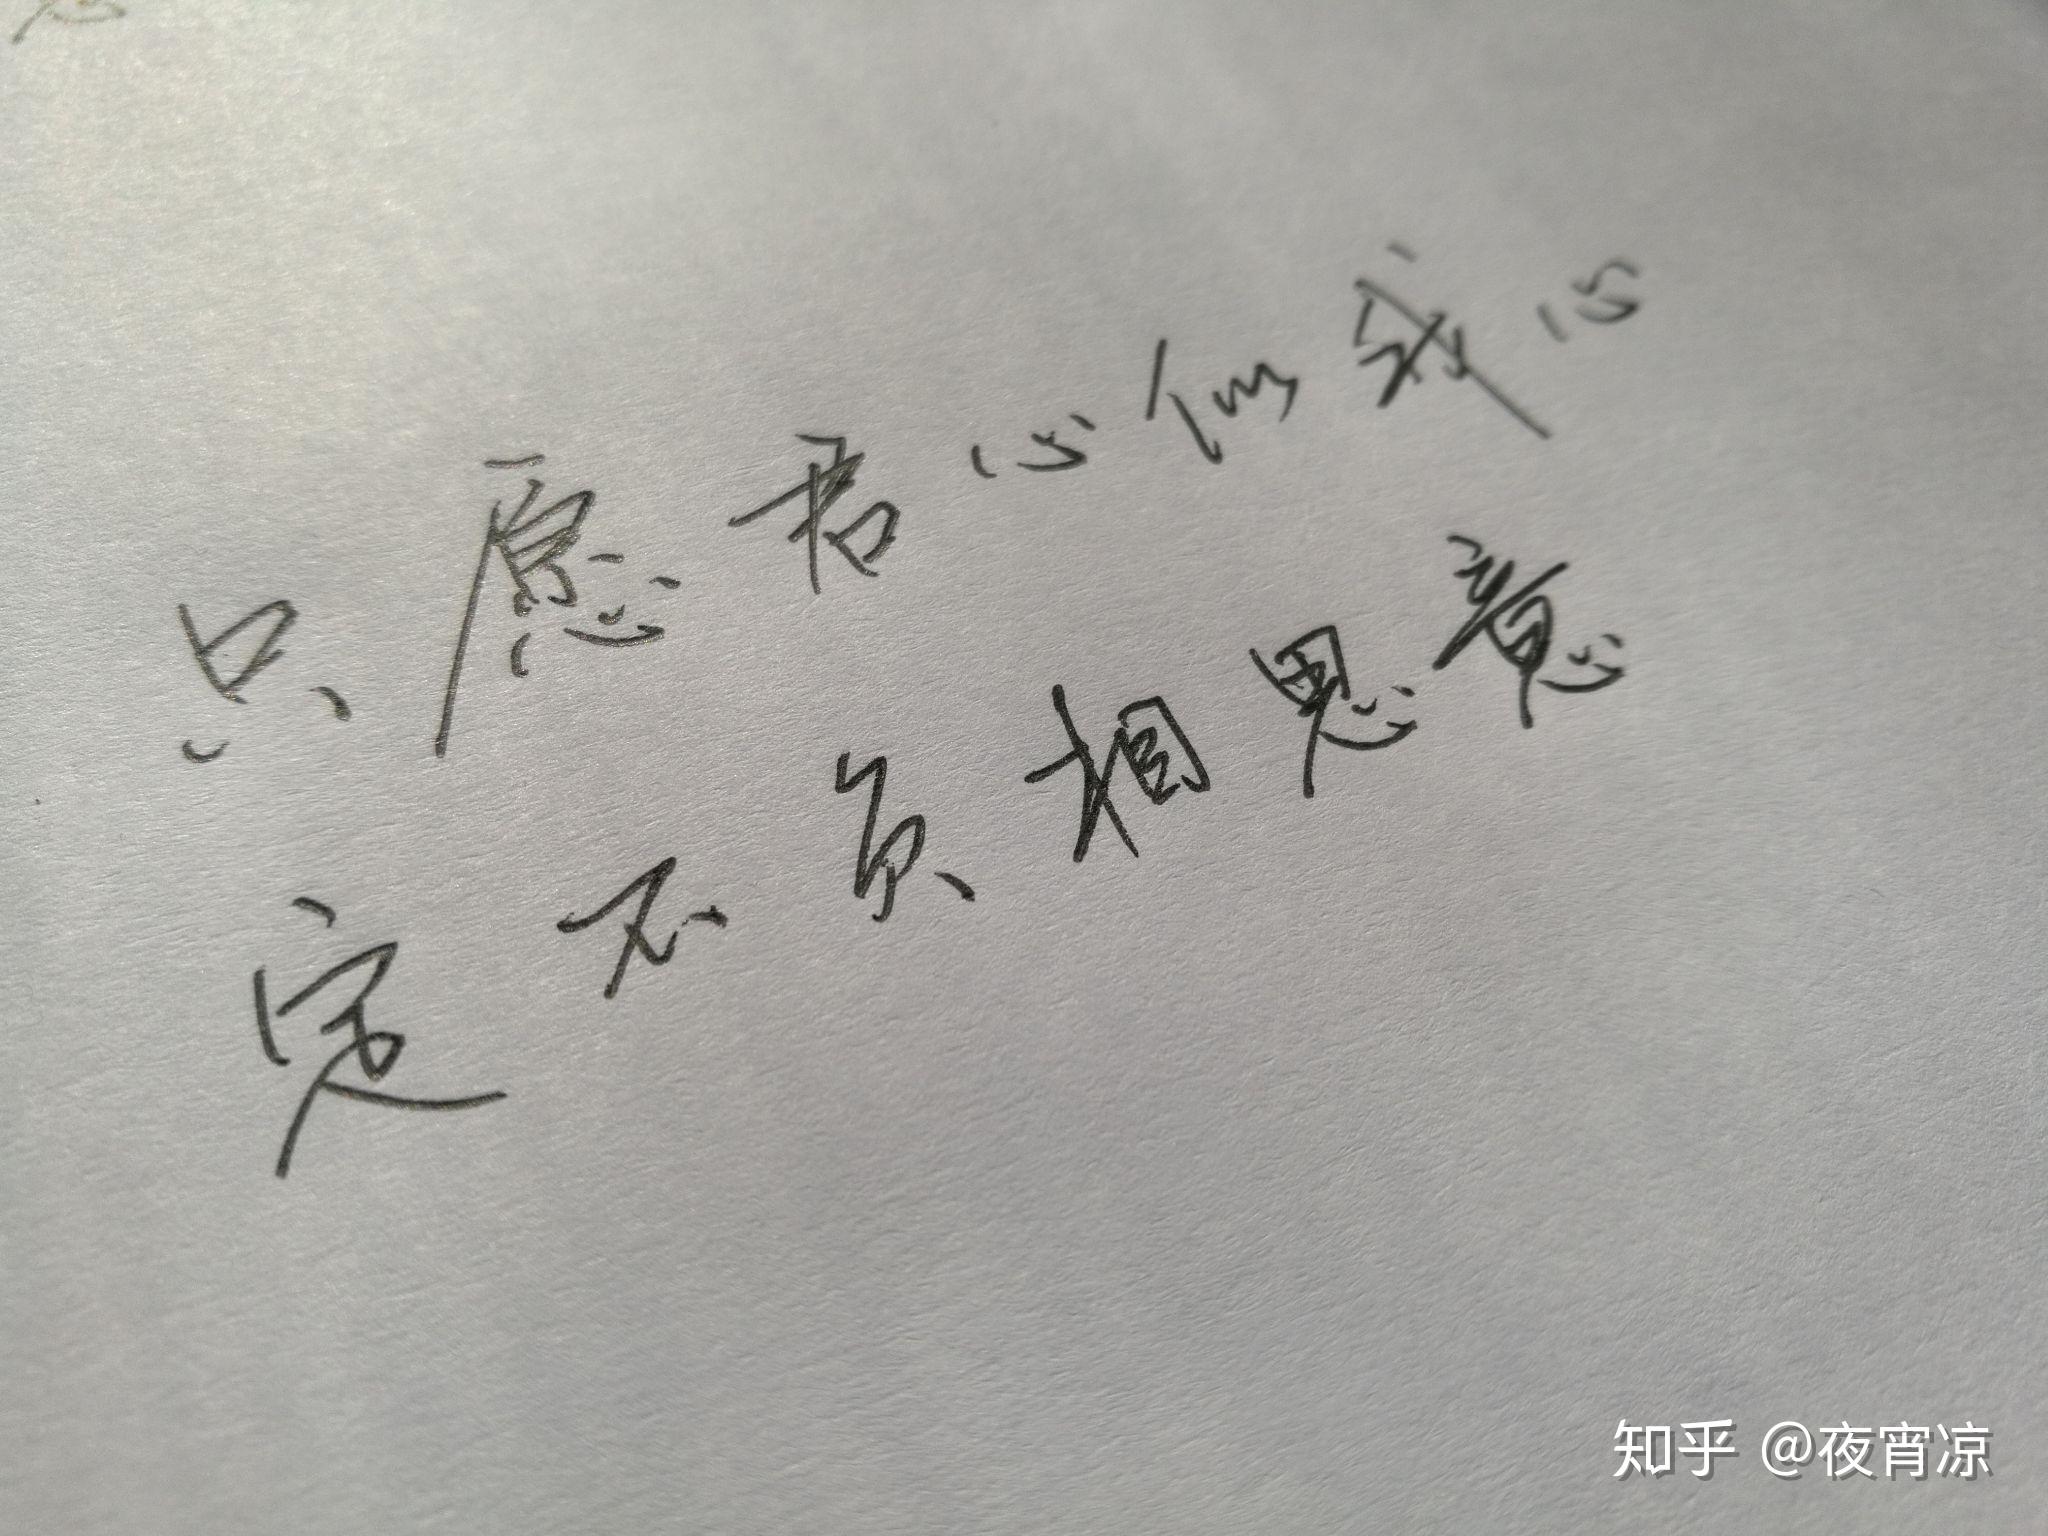 只愿君心似我心
定不负相思意
知乎 @夜宵凉